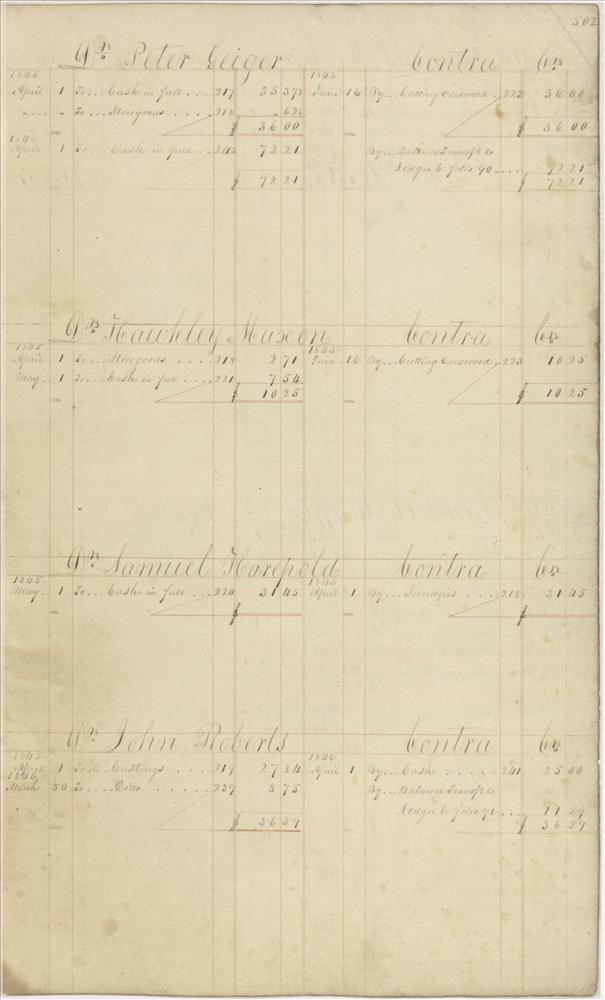 502
Drs Peter Geiger Contra Crs
1845 1845
April 1 To... Cash in full .... 217 35 37½ June 16 By... Cutting Cordwood . 223 36 00
" .. " To... Storegoods .... 218 " 62½
$ 36 00 $ 36 00
1846
April 1 To... Cash in full .... 242 72 21 By... Balance Transf'd to
Ledger C folio 90 .... 72 21
$ 72 21 $ 72 21
Drs Hawkley Maxon Contra Crs
1845 1845
April 1 To... Storegoods ..... 218 2 71 June 16 By... Cutting Cordwood . 223 10 25
May .. 1 To... Cash in full .... 221 7 54
$ 10 25 $ 10 25
Drs Samuel Contra Crs
1845 1845
May .. 1 To... Cash in full ... 220 31 45 April 1 By... Sundries .... 218 31 45
$ $
Drs John Roberts Contra Crs
1845 1846
April 1 To Castings .... 219 27 84 April 1 By... Cash ..... 241 25 00
1846
March 30 To... Ditto ..... 239 8 75 By... Balance Transf'd to
Ledger C folio 91 .... 11 59
$ 36 59 $ 36 59